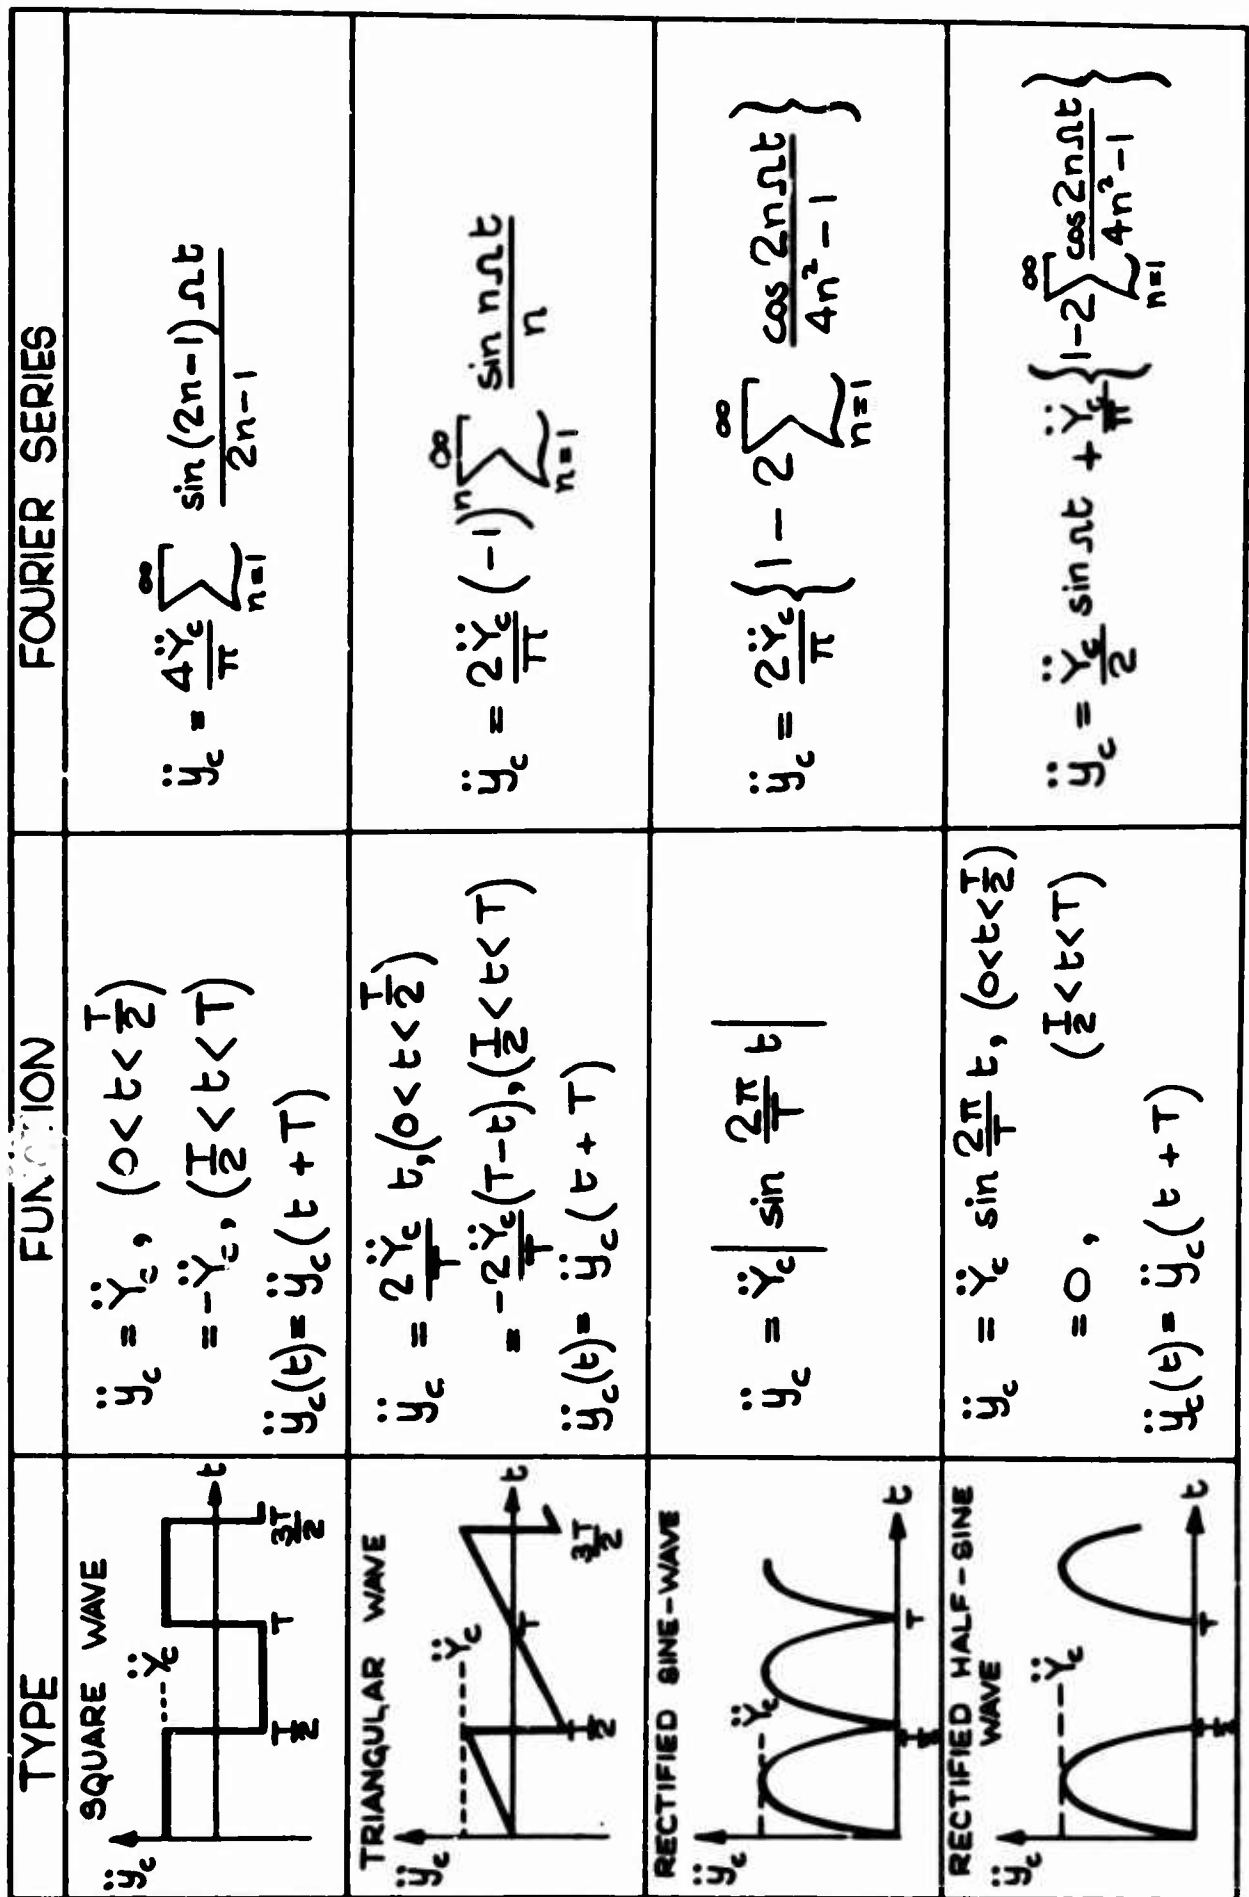 TYPE FUNCTION FOURIER SERIES
SQUARE WAVE
ÿ_c
Ÿ_c
t
T/2 T 3T/2
ÿ_c = Ÿ_c, (0<t<T/2)
=-Ÿ_c, (T/2<t<T)
ÿ_c(t)=ÿ_c(t+T)
ÿ_c = 4Ÿ_c/π ∑_{n=1}^{∞} sin(2n-1)Ωt/2n-1
TRIANGULAR WAVE
ÿ_c
Ÿ_c
t
T/2 T 3T/2
ÿ_c = 2Ÿ_c/T t,(0<t<T/2)
= -2Ÿ_c/T(T-t),(T/2<t<T)
ÿ_c(t)= ÿ_c(t+T)
ÿ_c = 2Ÿ_c/π (-1)^n ∑_{n=1}^{∞} sin nΩt/n
RECTIFIED SINE-WAVE
ÿ_c
Ÿ_c
t
T/2 T
ÿ_c = Ÿ_c|sin 2π/T t|
ÿ_c = 2Ÿ_c/π {1 - 2 ∑_{n=1}^{∞} cos 2nΩt/4n²-1}
RECTIFIED HALF-SINE
WAVE
ÿ_c
Ÿ_c
t
T/2 T
ÿ_c = Ÿ_c sin 2π/T t, (0<t<T/2)
=0, (T/2<t<T)
ÿ_c(t)=ÿ_c(t+T)
ÿ_c = Ÿ_c/2 sin Ωt + Ÿ_c/π {1-2 ∑_{n=1}^{∞} cos 2nΩt/4n²-1}